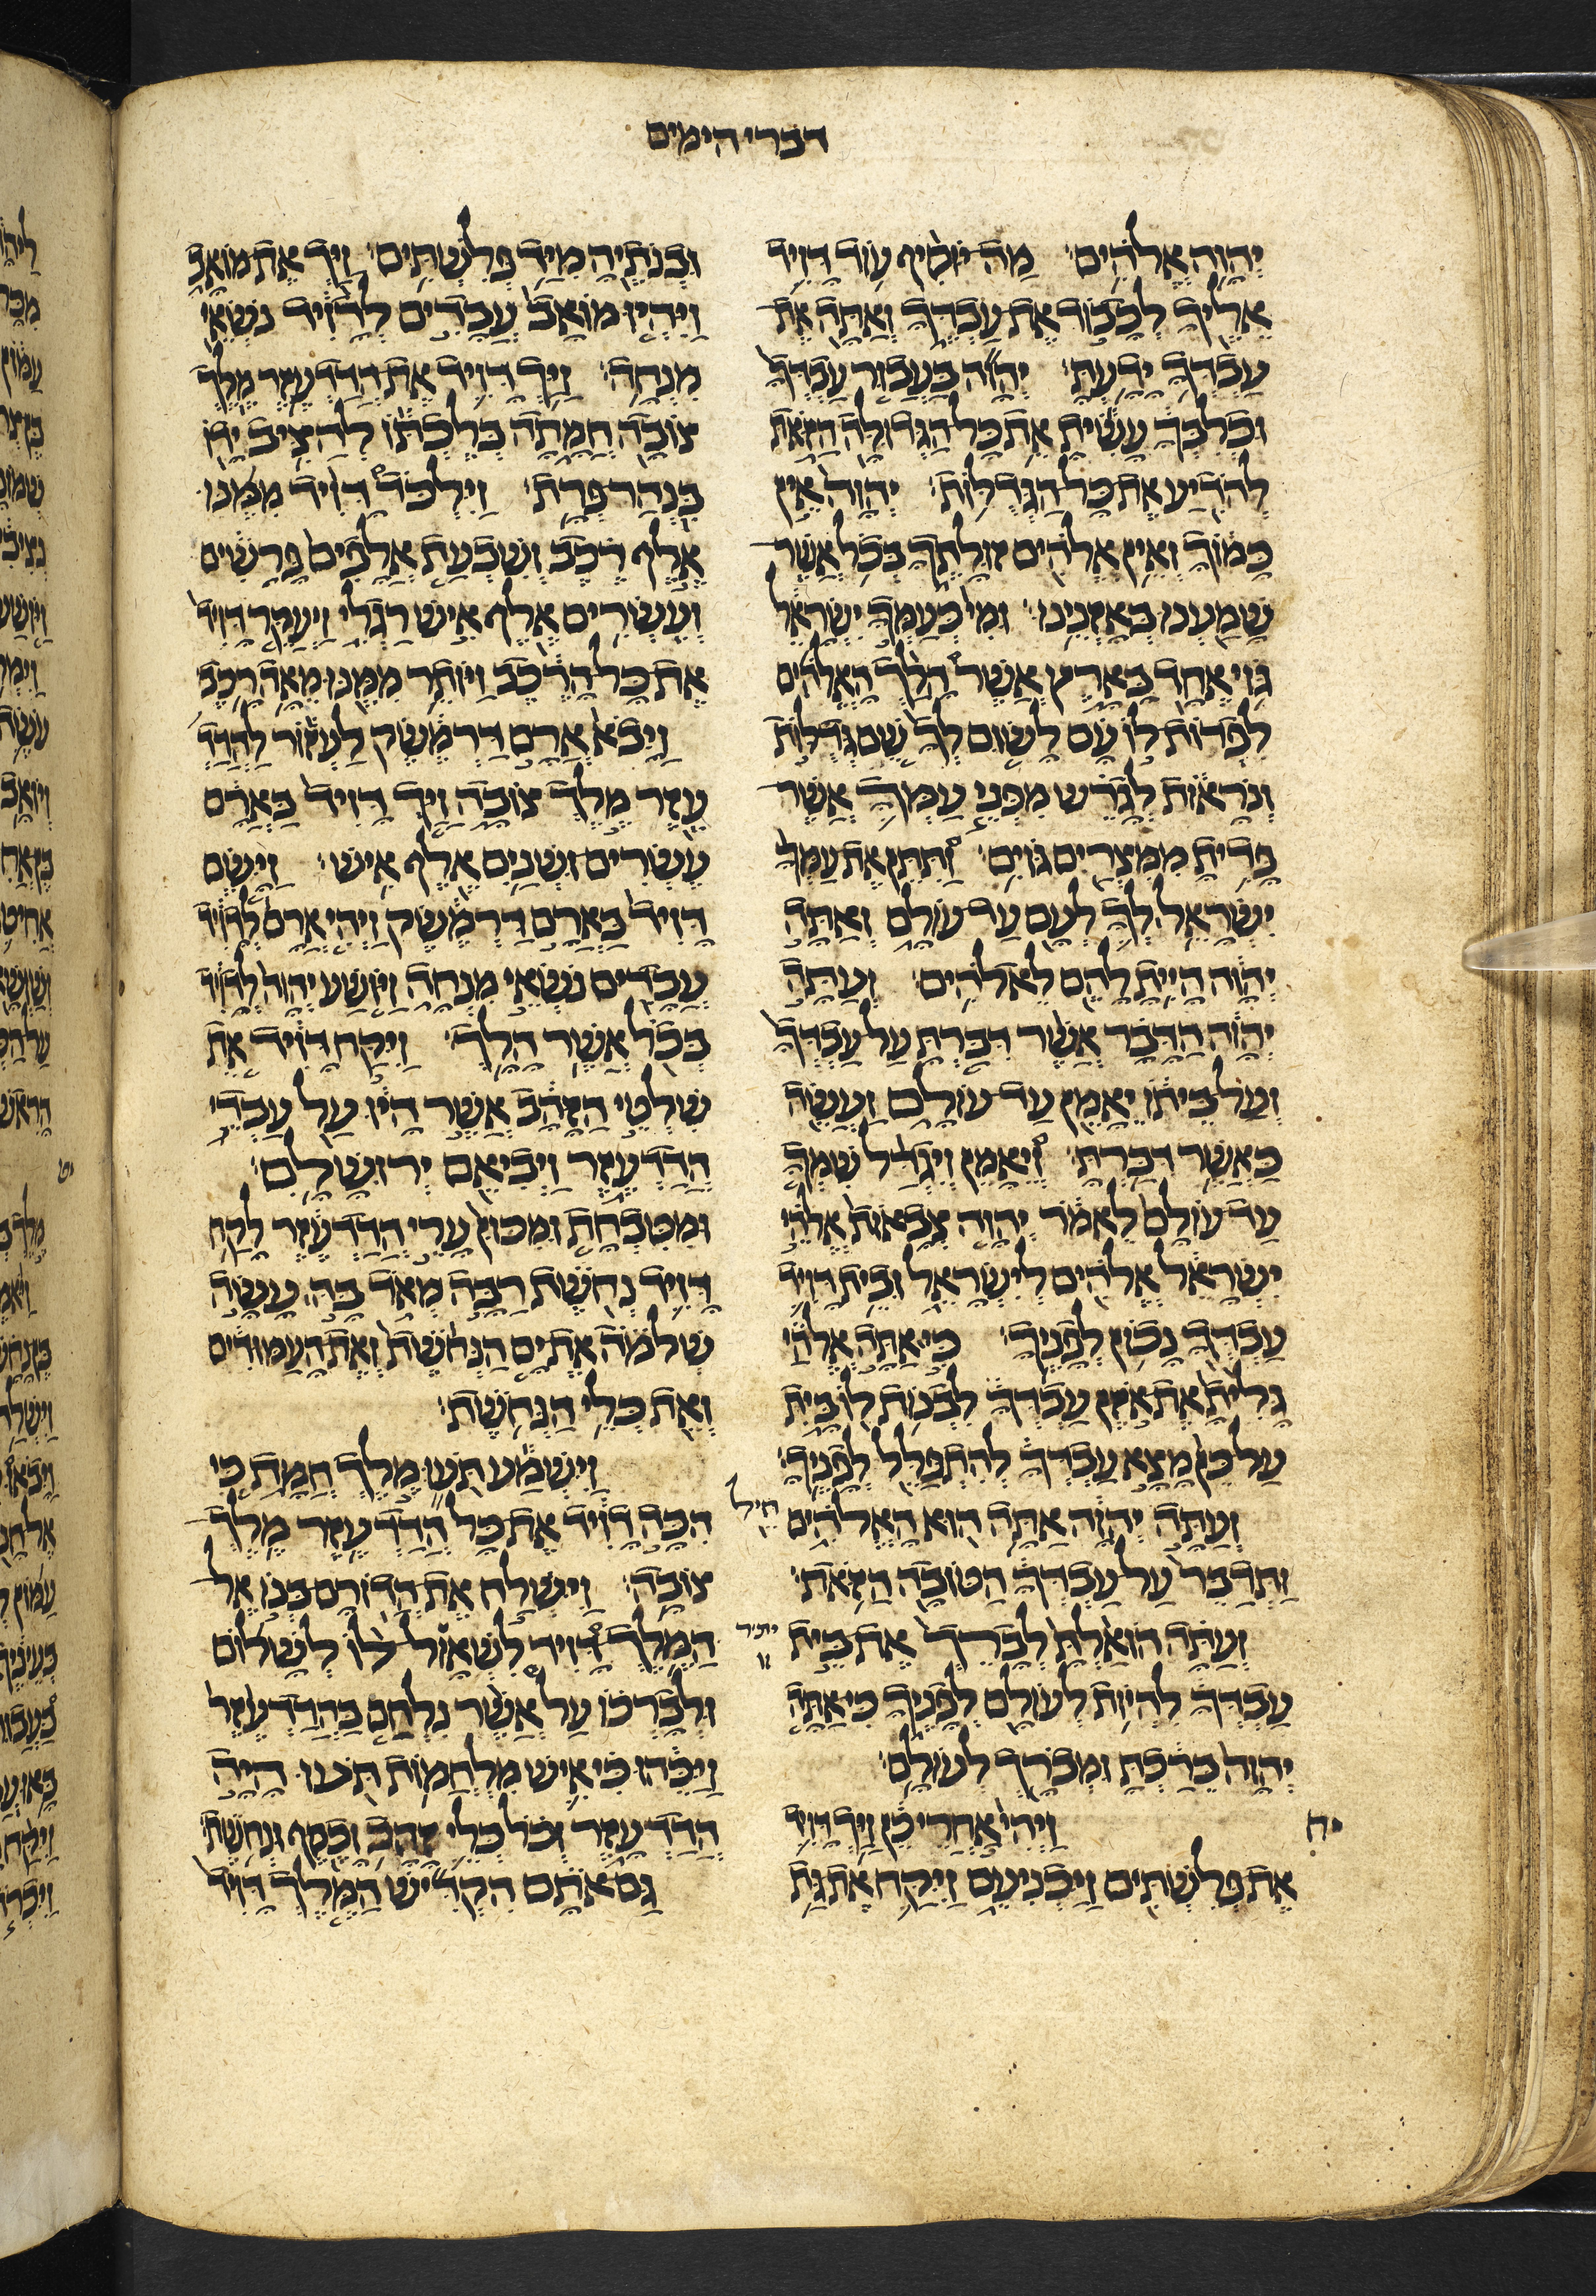 דברי הימים
יְהוָה אֱלֹהִים׃ מַה יּוֹסִיף עוֹד דָּוִיד
אֵלֶיךָ לְכָבוֹד אֶת עַבְדֶּךָ וְאַתָּה אֶת
עַבְדְּךָ יָדָעְתָּ׃ יְהוָה בַּעֲבוּר עַבְדְּךָ
וּכְלִבְּךָ עָשִׂיתָ אֵת כָּל הַגְּדוּלָּה הַזֹּאת
לְהֹדִיעַ אֶת כָּל הַגְּדֻלּוֹת׃ יְהוָה אֵין
כָּמוֹךָ וְאֵין אֱלֹהִים זוּלָתֶךָ בְּכֹל אֲשֶׁר
שָׁמַעְנוּ בְּאָזְנֵינוּ׃ וּמִי כְּעַמְּךָ יִשְׂרָאֵל
גּוֹי אֶחָד בָּאָרֶץ אֲשֶׁר הָלַךְ הָאֱלֹהִים
לִפְדּוֹת לוֹ עָם לָשׂוּם לְךָ שֵׁם גְּדֻלּוֹת
וְנֹרָאוֹת לְגָרֵשׁ מִפְּנֵי עַמְּךָ אֲשֶׁר
פָּדִיתָ מִמִּצְרַיִם גּוֹיִם׃ וַתִּתֵּן אֶת עַמְּךָ
יִשְׂרָאֵל לְךָ לְעָם עַד עוֹלָם וְאַתָּה
יְהוָה הָיִיתָ לָהֶם לֵאלֹהִים׃ וְעַתָּה
יְהוָה הַדָּבָר אֲשֶׁר דִּבַּרְתָּ עַל עַבְדְּךָ
וְעַל בֵּיתוֹ יֵאָמֵן עַד עוֹלָם וַעֲשֵׂה
כַּאֲשֶׁר דִּבַּרְתָּ׃ וְיֵאָמֵן וְיִגְדַּל שִׁמְךָ
עַד עוֹלָם לֵאמֹר יְהוָה צְבָאוֹת אֱלֹהֵי
יִשְׂרָאֵל אֱלֹהִים לְיִשְׂרָאֵל וּבֵית דָּוִיד
עַבְדְּךָ נָכוֹן לְפָנֶיךָ׃ כִּי אַתָּה אֱלֹהַי
גָּלִיתָ אֶת אֹזֶן עַבְדְּךָ לִבְנוֹת לוֹ בָּיִת
עַל כֵּן מָצָא עַבְדְּךָ לְהִתְפַּלֵּל לְפָנֶיךָ׃
וְעַתָּה יְהוָה אַתָּה הוּא הָאֱלֹהִים
וַתְּדַבֵּר עַל עַבְדְּךָ הַטּוֹבָה הַזֹּאת׃
וְעַתָּה הוֹאַלְתָּ לְבָרֵךְ אֶת בֵּית
עַבְדְּךָ לִהְיוֹת לְעוֹלָם לְפָנֶיךָ כִּי אַתָּה
יְהוָה בֵּרַכְתָּ וּמְבֹרָךְ לְעוֹלָם׃
יח
וַיְהִי אַחֲרֵי כֵן וַיַּךְ דָּוִיד
אֶת פְּלִשְׁתִּים וַיַּכְנִיעֵם וַיִּקַּח אֶת גַּת
וּבְנֹתֶיהָ מִיַּד פְּלִשְׁתִּים׃ וַיַּךְ אֶת מוֹאָב
וַיִּהְיוּ מוֹאָב עֲבָדִים לְדָוִיד נֹשְׂאֵי
מִנְחָה׃ וַיַּךְ דָּוִיד אֶת הֲדַדְעֶזֶר מֶלֶךְ
צוֹבָה חֲמָתָה בְּלֶכְתּוֹ לְהַצִּיב יָדוֹ
בִּנְהַר פְּרָת׃ וַיִּלְכֹּד דָּוִיד מִמֶּנּוּ
אֶלֶף רֶכֶב וְשִׁבְעַת אֲלָפִים פָּרָשִׁים
וְעֶשְׂרִים אֶלֶף אִישׁ רַגְלִי וַיְעַקֵּר דָּוִיד
אֶת כָּל הָרֶכֶב וַיּוֹתֵר מִמֶּנּוּ מֵאָה רָכֶב
וַיָּבֹא אֲרַם דַּרְמֶשֶׂק לַעְזוֹר לַהֲדַד
עֶזֶר מֶלֶךְ צוֹבָה וַיַּךְ דָּוִיד בַּאֲרָם
עֶשְׂרִים וּשְׁנַיִם אֶלֶף אִישׁ׃ וַיָּשֶׂם
דָּוִיד בַּאֲרַם דַּרְמֶשֶׂק וַיְהִי אֲרָם לְדָוִיד
עֲבָדִים נֹשְׂאֵי מִנְחָה וַיּוֹשַׁע יְהוָה לְדָוִיד
בְּכֹל אֲשֶׁר הָלָךְ׃ וַיִּקַּח דָּוִיד אֵת
שִׁלְטֵי הַזָּהָב אֲשֶׁר הָיוּ עַל עַבְדֵי
הֲדַדְעָזֶר וַיְבִיאֵם יְרוּשָׁלִָם׃
וּמִטִּבְחַת וּמִכּוּן עָרֵי הֲדַדְעֶזֶר לָקַח
דָּוִיד נְחֹשֶׁת רַבָּה מְאֹד בָּהּ עָשָׂה
שְׁלֹמֹה אֶת יָם הַנְּחֹשֶׁת וְאֶת הָעַמּוּדִים
וְאֵת כְּלֵי הַנְּחֹשֶׁת׃
וַיִּשְׁמַע תֹּעוּ מֶלֶךְ חֲמָת כִּי
חיל
הִכָּה דָוִיד אֶת כָּל הֲדַדְעֶזֶר מֶלֶךְ
צוֹבָה׃ וַיִּשְׁלַח אֶת הֲדוֹרָם בְּנוֹ אֶל
הַמֶּלֶךְ דָּוִיד לִשְׁאוֹל לוֹ לְשָׁלוֹם
יתיר
וּלְבָרְכוֹ עַל אֲשֶׁר נִלְחַם בַּהֲדַדְעֶזֶר
וַיַּכֵּהוּ כִּי אִישׁ מִלְחֲמוֹת תֹּעוּ הָיָה
הֲדַדְעָזֶר וְכֹל כְּלֵי זָהָב וָכֶסֶף וּנְחֹשֶׁת׃
גַּם אֹתָם הִקְדִּישׁ הַמֶּלֶךְ דָּוִיד